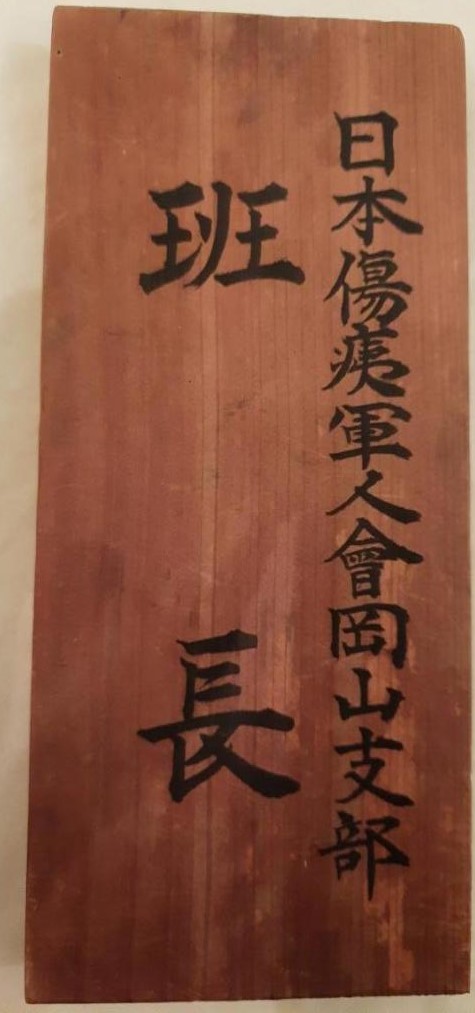 日本傷痍軍人會岡山支部
班長